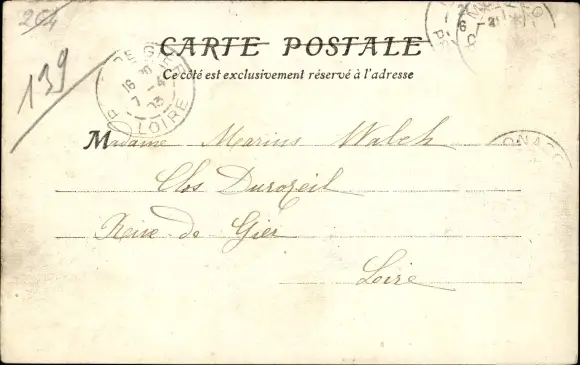 264
139
CARTE POSTALE
Ce côté est exclusivement réservé à l'adresse
16
7 -4
03
LOIRE
6
ONACO
Madame Marius Walch
Clos Durozeil
Rive de Gier
Loire